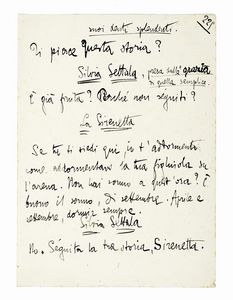 suoi denti splendenti.
291
Ti piace questa storia?
Silvia Settala, presa dalla grazia
di quella semplice.
È già finita? Perché non séguiti?
La Sirenetta
Se tu ti siedi qui, io t'addormento
come addormentavo la tua figliuola su
l'arena. Non hai sonno a quest'ora? È
buono il sonno, di settembre. Aprile e
settembre, dormir sempre.
Silvia Settala
No. Séguita la tua storia, Sirenetta.